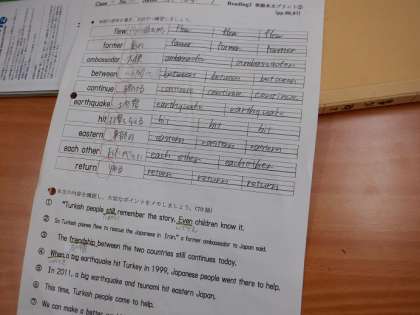 Reading2
flew flew flew flew
former former former former
ambassador 大使 ambassador ambassador
between between between between
continue 続ける continue continue continue
earthquake 地震 earthquake earthquake
hit hit hit hit
eastern 東の eastern eastern eastern
each other each other each other
return 戻る return return return
① "Turkish people still remember the story. Even children know it.
② So Turkish planes flew to rescue the Japanese in Iran," a former ambassador to Japan said.
③ The friendship between the two countries still continues today.
④ When a big earthquake hit Turkey in 1999, Japanese people went there to help.
⑤ In 2011, a big earthquake and tsunami hit eastern Japan.
⑥ This time, Turkish people came to help.
⑦ We can make a better